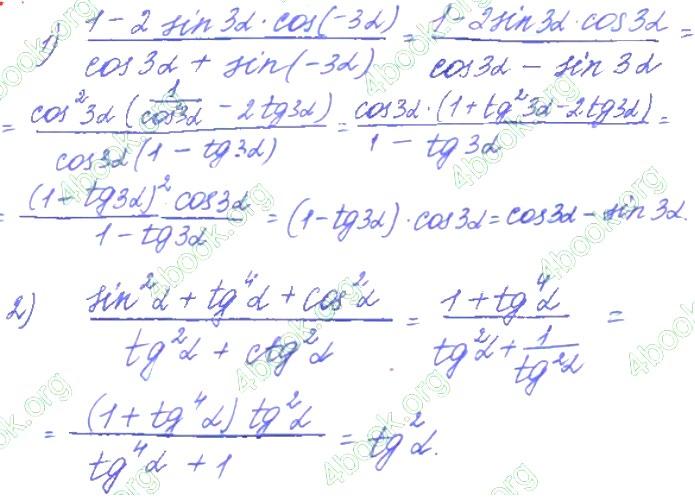 1) (1 - 2 sin3α · cos(-3α)) / (cos3α + sin(-3α)) = (1 - 2sin3α · cos3α) / (cos3α - sin3α) =
= (cos²3α (1/cos²3α - 2tg3α)) / (cos3α (1 - tg3α)) = (cos3α · (1 + tg²3α - 2tg3α)) / (1 - tg3α) =
= ((1 - tg3α)² cos3α) / (1 - tg3α) = (1 - tg3α) · cos3α = cos3α - sin3α.
2) (sin²α + tg⁴α + cos²α) / (tg²α + ctg²α) = (1 + tg⁴α) / (tg²α + 1/tg²α) =
= ((1 + tg⁴α) tg²α) / (tg⁴α + 1) = tg²α.
4book.org